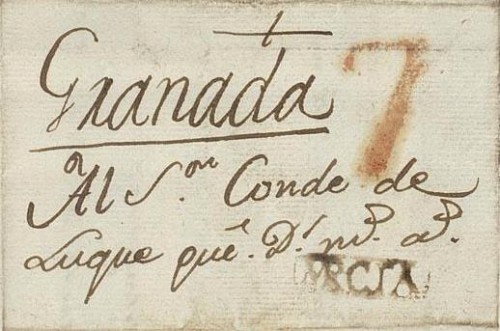 Granada
7
Al S.or Conde de
Luque que. D.s m.s a.s